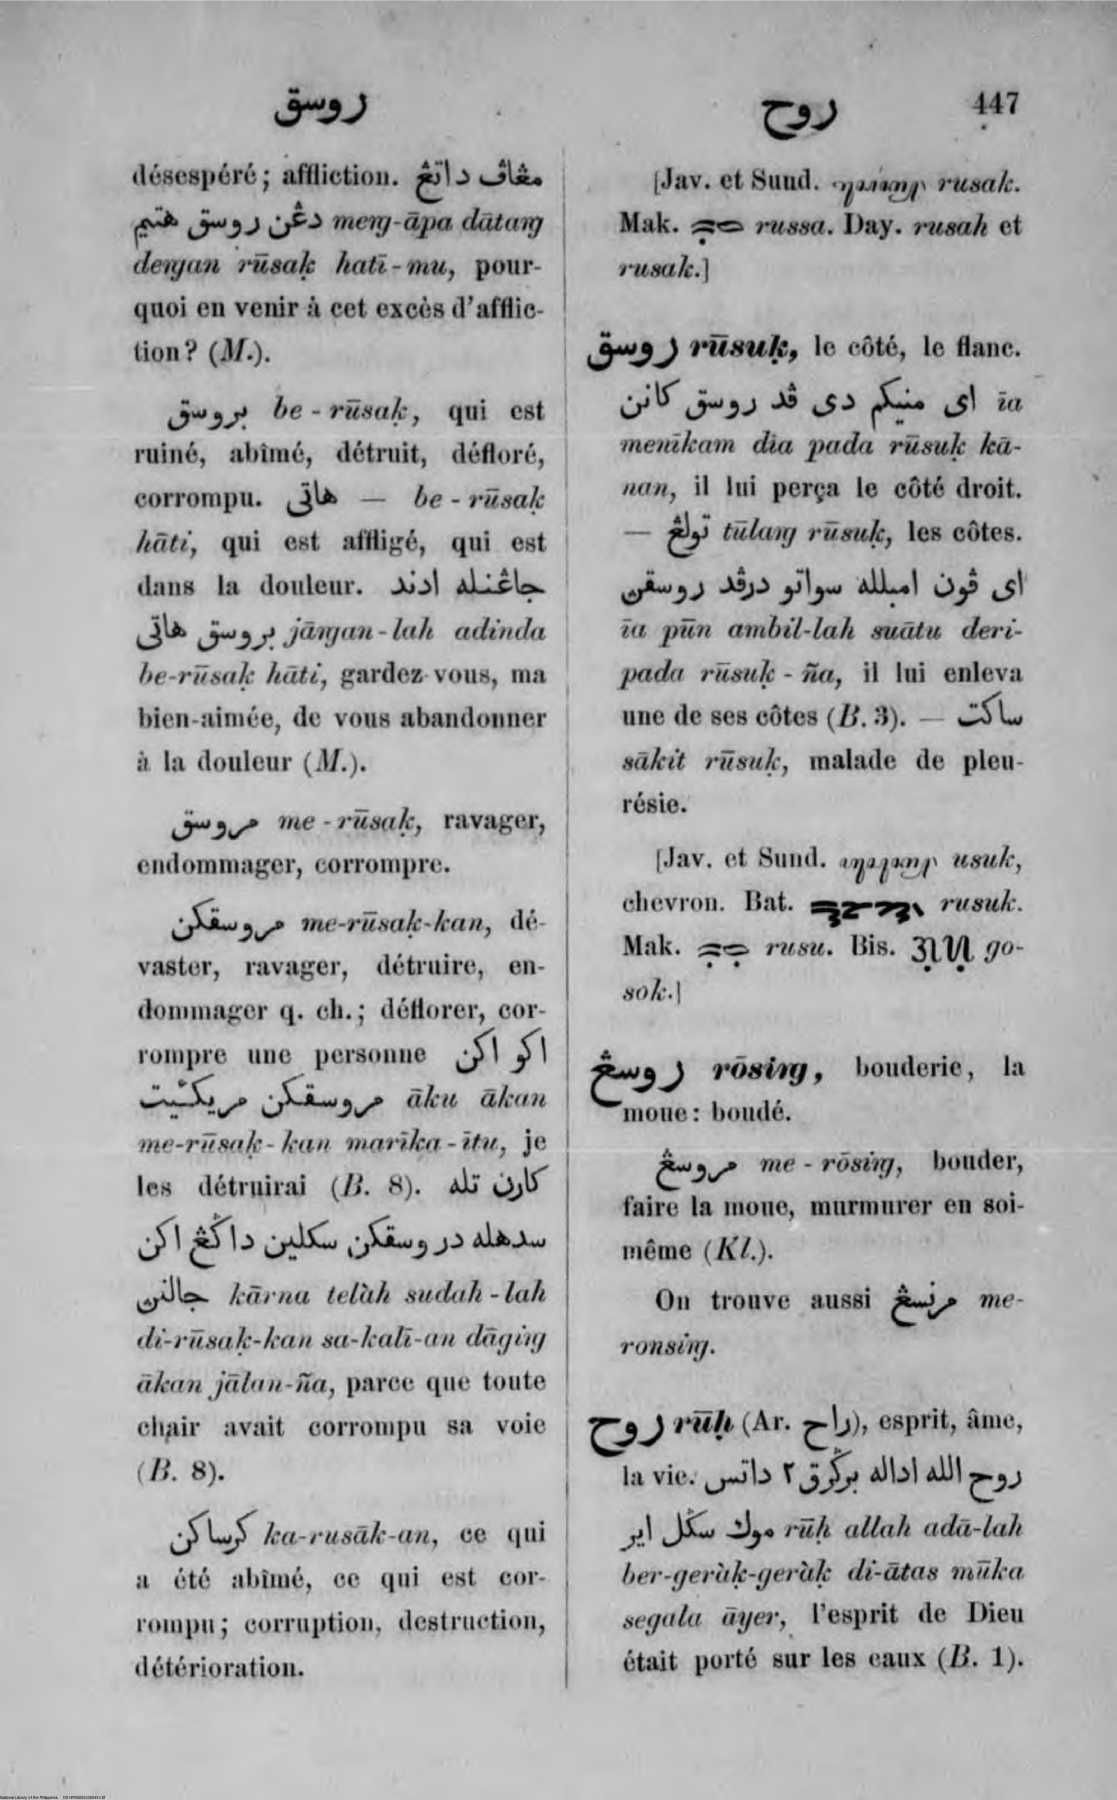 روسق
روح
447
désespéré; affliction. مڠاڤ داتڠ
دڠن روسق هتيم meng-āpa dātang
dengan rūsaḳ hatī-mu, pour-
quoi en venir à cet excès d'afflic-
tion? (M.).
بروسق be-rūsaḳ, qui est
ruiné, abîmé, détruit, défloré,
corrompu. هاتی — be-rūsaḳ
hāti, qui est affligé, qui est
dans la douleur. جاڠنله ادند
بروسق هاتی jāngan-lah adinda
be-rūsaḳ hāti, gardez-vous, ma
bien-aimée, de vous abandonner
à la douleur (M.).
مروسق me-rūsaḳ, ravager,
endommager, corrompre.
مروسقكن me-rūsaḳ-kan, dé-
vaster, ravager, détruire, en-
dommager q. ch.; déflorer, cor-
rompre une personne اكو اكن
مروسقكن مريكئيت āku ākan
me-rūsaḳ-kan marīka-ītu, je
les détruirai (B. 8). كارن تله
سدهله دروسقكن سكلين داڬڠ اكن
جالنڽ kārna telàh sudah-lah
di-rūsaḳ-kan sa-kalī-an dāging
ākan jālan-ña, parce que toute
chair avait corrompu sa voie
(B. 8).
كرساكن ka-rusāk-an, ce qui
a été abîmé, ce qui est cor-
rompu; corruption, destruction,
détérioration.
[Jav. et Sund. rusak.
Mak. russa. Day. rusah et
rusak.]
روسق rūsuḳ, le côté, le flanc.
ای منيكم دی ڤد روسق كانن īa
menīkam dīa pada rūsuḳ kā-
nan, il lui perça le côté droit.
— تولڠ tūlang rūsuḳ, les côtes.
ای ڤون امبلله سواتو درڤد روسقڽ
īa pūn ambil-lah suātu deri-
pada rūsuḳ-ña, il lui enleva
une de ses côtes (B. 3). — ساكت
sākit rūsuḳ, malade de pleu-
résie.
[Jav. et Sund. usuk,
chevron. Bat. rusuk.
Mak. rusu. Bis. go-
sok.]
روسڠ rōsing, bouderie, la
moue: boudé.
مروسڠ me-rōsing, bouder,
faire la moue, murmurer en soi-
même (Kl.).
On trouve aussi مرنسڠ me-
ronsing.
روح rūḥ (Ar. راح), esprit, âme,
la vie. روح الله اداله برڬرق٢ داتس
موك سڬل اير rūḥ allah adā-lah
ber-geràḳ-geràḳ di-ātas mūka
segala āyer, l'esprit de Dieu
était porté sur les eaux (B. 1).